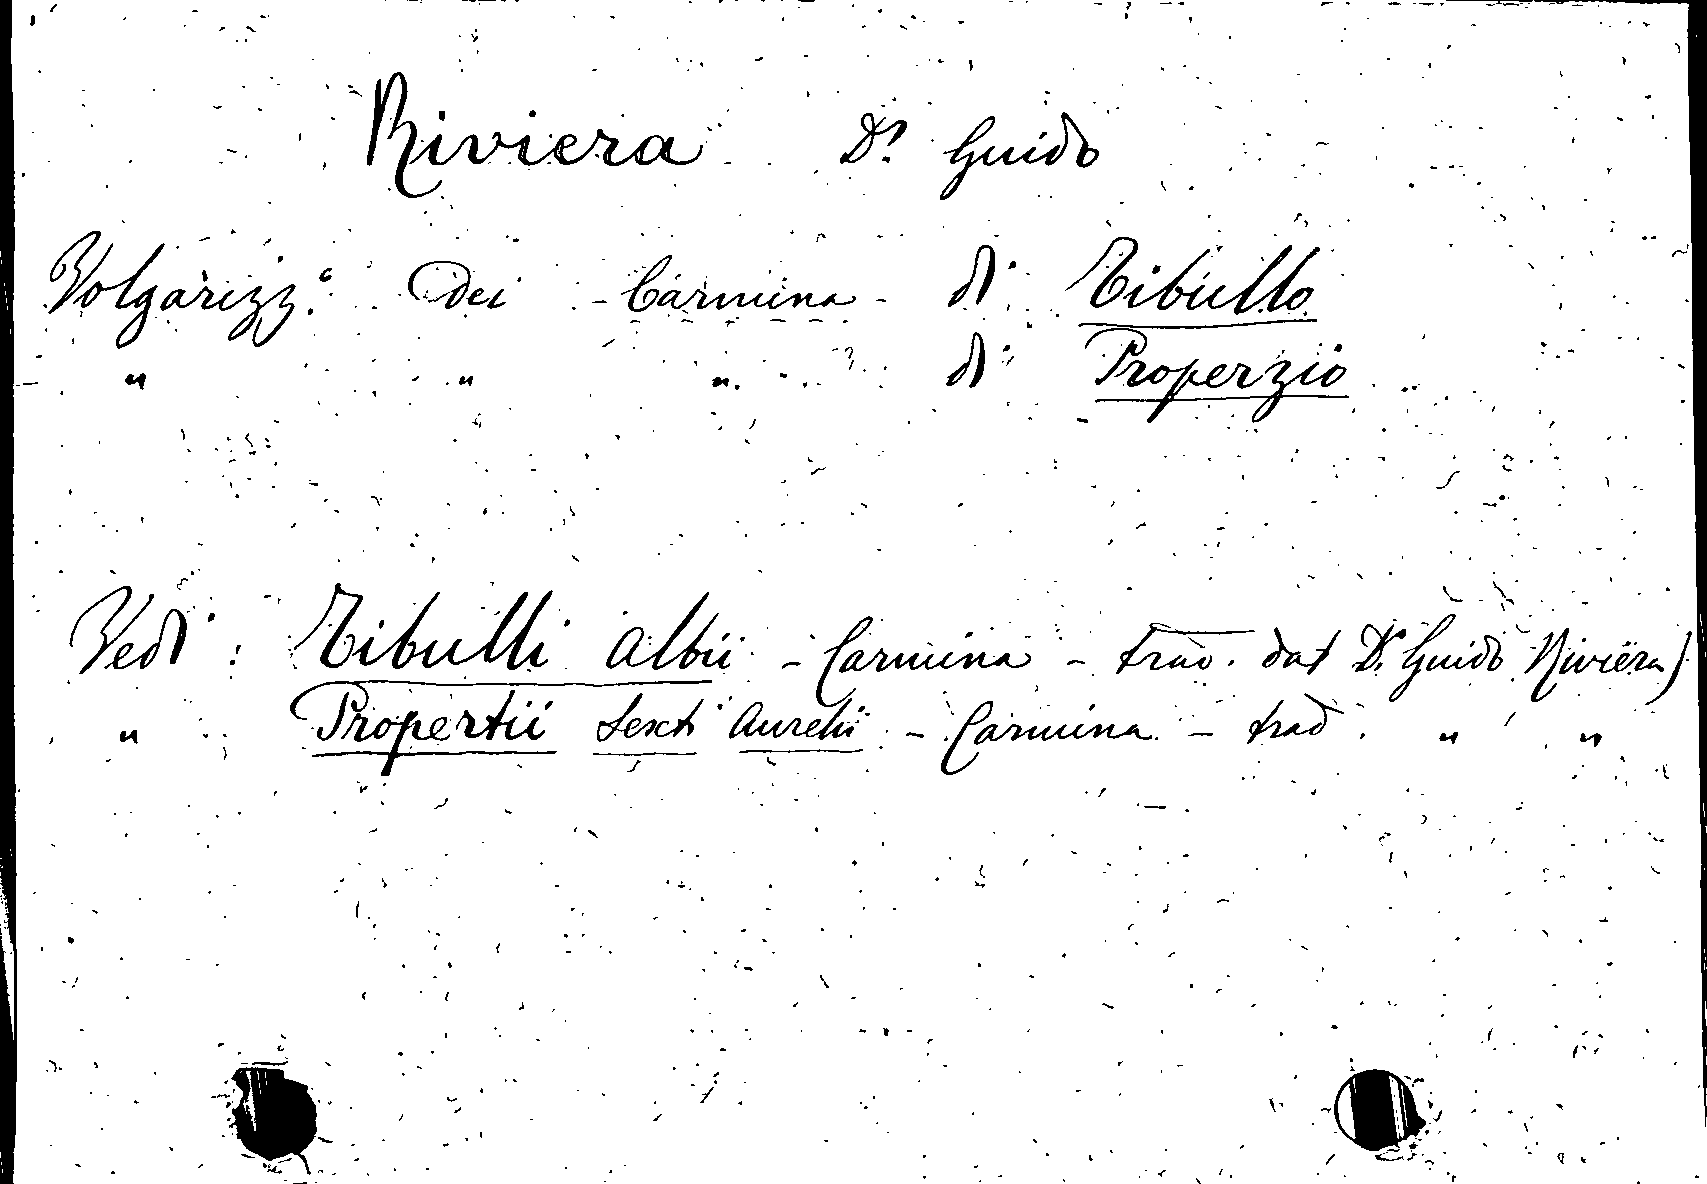 Riviera Dr. Guido
Volgarizz.e dei - Carmina - di Tibullo
" " " di Properzio
Vedi : Tibulli Albii - Carmina - trad. dal Dr. Guido Riviera)
" Propertii Sexti Aurelii - Carmina - trad. " "